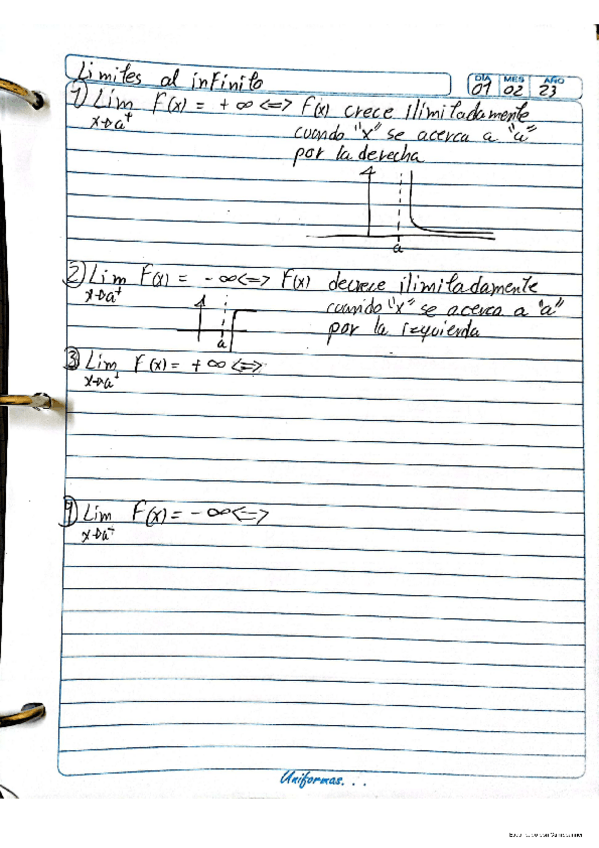 Limites al infinito
DIA MES AÑO
01 02 23
1) Lim F(x) = +∞ <=> F(x) crece ilimitadamente
x→a⁺ cuando "x" se acerca a "a"
por la derecha
a
2) Lim F(x) = -∞ <=> F(x) decrece ilimitadamente
x→a⁺ cuando "x" se acerca a "a"
por la izquierda
a
3) Lim F(x) = +∞ <=>
x→a
4) Lim F(x) = -∞ <=>
x→a⁺
Uniformas...